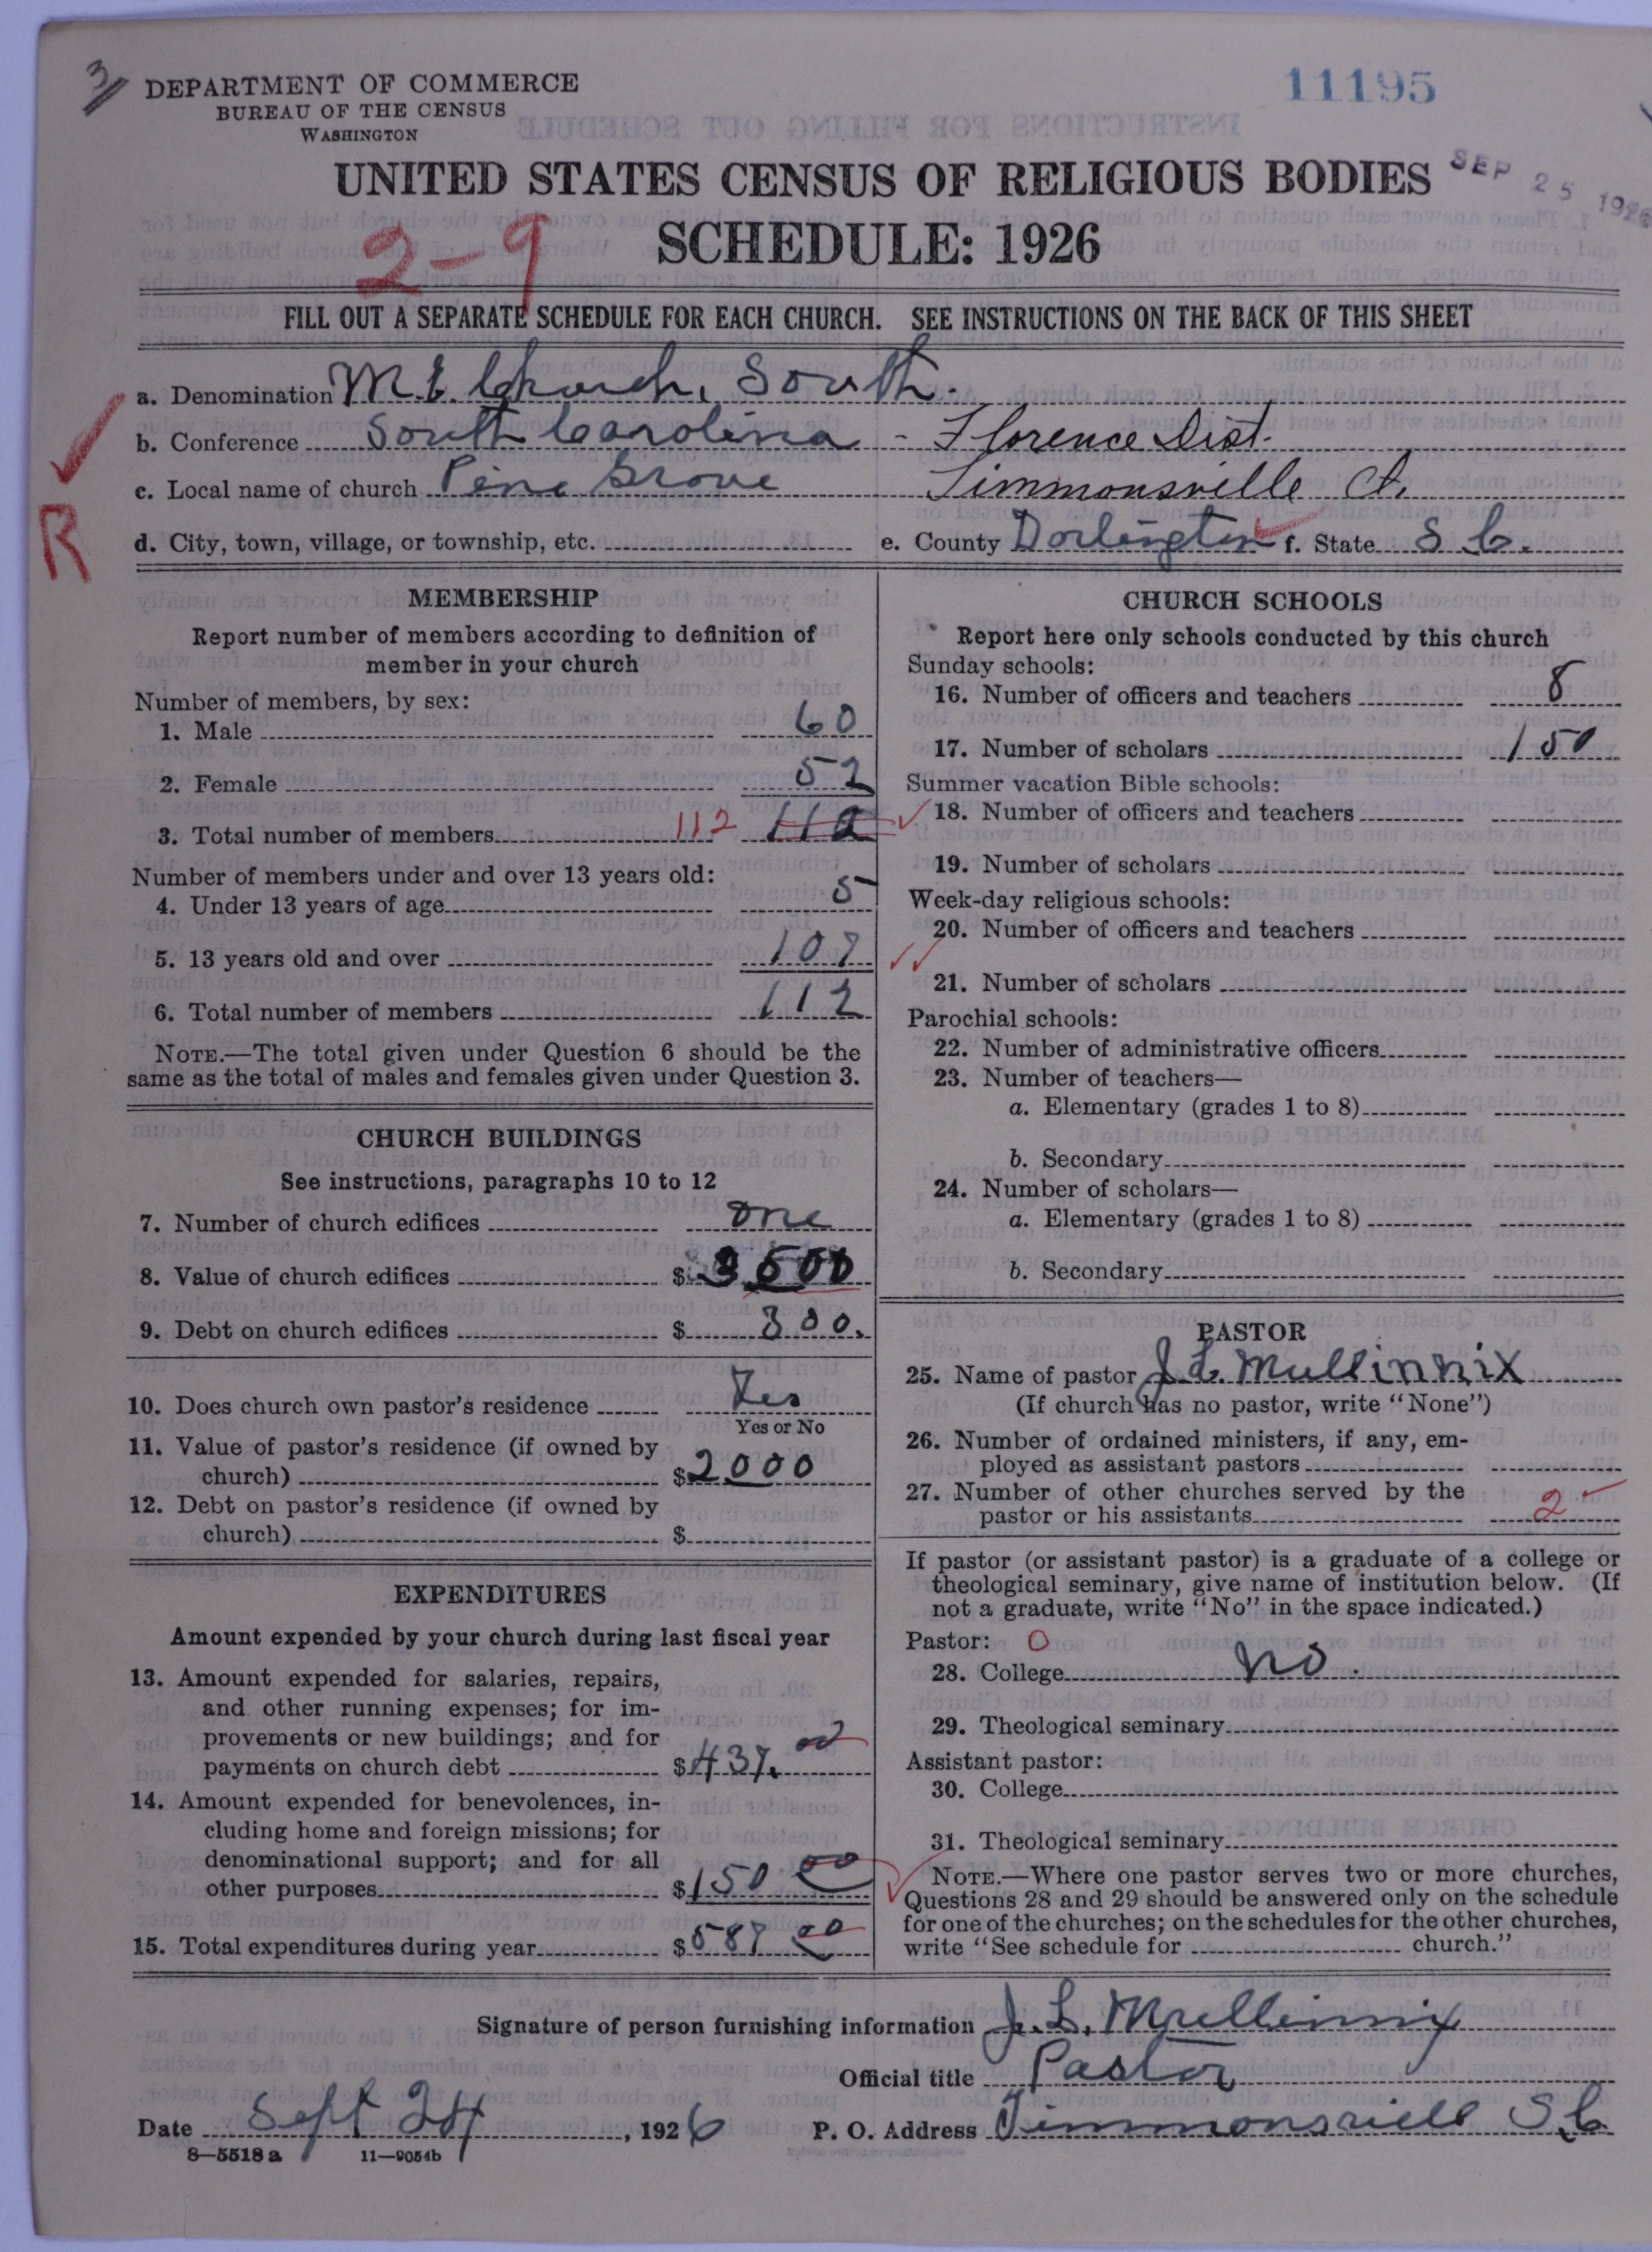 3
DEPARTMENT OF COMMERCE
BUREAU OF THE CENSUS
WASHINGTON
11195
SEP 25 1926
UNITED STATES CENSUS OF RELIGIOUS BODIES
SCHEDULE: 1926
2-9
FILL OUT A SEPARATE SCHEDULE FOR EACH CHURCH. SEE INSTRUCTIONS ON THE BACK OF THIS SHEET
a. Denomination M.E. Church, South.
b. Conference South Carolina - Florence Dist.
c. Local name of church Pine Grove Timmonsville Ct.
R
d. City, town, village, or township, etc. e. County Darlington f. State S.C.
MEMBERSHIP
Report number of members according to definition of
member in your church
Number of members, by sex:
1. Male 60
2. Female 52
3. Total number of members 112 112
Number of members under and over 13 years old:
4. Under 13 years of age 5
5. 13 years old and over 107
6. Total number of members 112
NOTE.—The total given under Question 6 should be the
same as the total of males and females given under Question 3.
CHURCH BUILDINGS
See instructions, paragraphs 10 to 12
7. Number of church edifices one
8. Value of church edifices $ 3500
9. Debt on church edifices $ 300.
10. Does church own pastor's residence Yes
Yes or No
11. Value of pastor's residence (if owned by
church) $ 2000
12. Debt on pastor's residence (if owned by
church) $
EXPENDITURES
Amount expended by your church during last fiscal year
13. Amount expended for salaries, repairs,
and other running expenses; for im-
provements or new buildings; and for
payments on church debt $ 437.00
14. Amount expended for benevolences, in-
cluding home and foreign missions; for
denominational support; and for all
other purposes $ 150 00
15. Total expenditures during year $ 587 00
CHURCH SCHOOLS
Report here only schools conducted by this church
Sunday schools:
16. Number of officers and teachers 8
17. Number of scholars 150
Summer vacation Bible schools:
18. Number of officers and teachers
19. Number of scholars
Week-day religious schools:
20. Number of officers and teachers
21. Number of scholars
Parochial schools:
22. Number of administrative officers
23. Number of teachers—
a. Elementary (grades 1 to 8)
b. Secondary
24. Number of scholars—
a. Elementary (grades 1 to 8)
b. Secondary
PASTOR
25. Name of pastor J.L. Mullinnix
(If church has no pastor, write "None")
26. Number of ordained ministers, if any, em-
ployed as assistant pastors
27. Number of other churches served by the
pastor or his assistants 2
If pastor (or assistant pastor) is a graduate of a college or
theological seminary, give name of institution below. (If
not a graduate, write "No" in the space indicated.)
Pastor: 0
28. College No.
29. Theological seminary
Assistant pastor:
30. College
31. Theological seminary
NOTE.—Where one pastor serves two or more churches,
Questions 28 and 29 should be answered only on the schedule
for one of the churches; on the schedules for the other churches,
write "See schedule for church."
Signature of person furnishing information J. L. Mullinnix
Official title Pastor
Date Sept 24, 1926 P. O. Address Timmonsville S.C.
8—5518 a 11—9054b